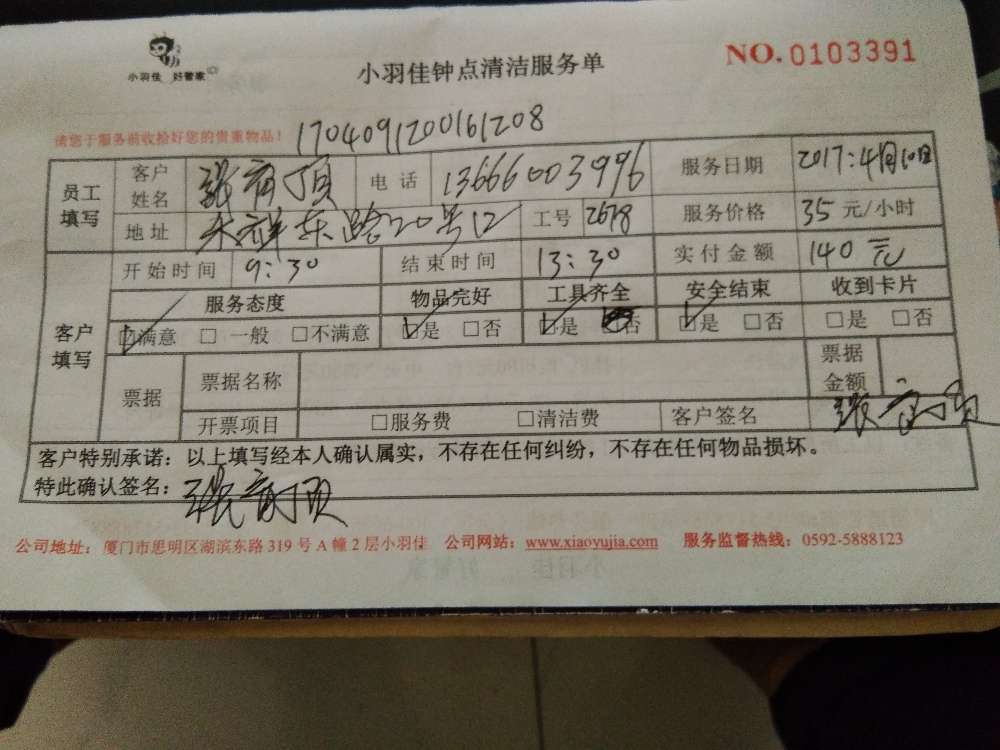 小羽佳 好管家
小羽佳钟点清洁服务单
NO.0103391
请您于服务前收拾好您的贵重物品！
1704091200161208
员工填写 客户姓名 张 顶 电话 13666003996 服务日期 2017:4月10日
地址 东路20号 工号 2678 服务价格 35 元/小时
开始时间 9:30 结束时间 13:30 实付金额 140元
客户填写 服务态度 物品完好 工具齐全 安全结束 收到卡片
☑满意 □ 一般 □不满意 ☑是 □否 ☑是 否 ☑是 □否 □是 □否
票据 票据名称 票据金额
开票项目 □服务费 □清洁费 客户签名 张
客户特别承诺：以上填写经本人确认属实，不存在任何纠纷，不存在任何物品损坏。
特此确认签名：张 顶
公司地址：厦门市思明区湖滨东路 319 号 A 幢 2 层小羽佳 公司网站：www.xiaoyujia.com 服务监督热线：0592-5888123